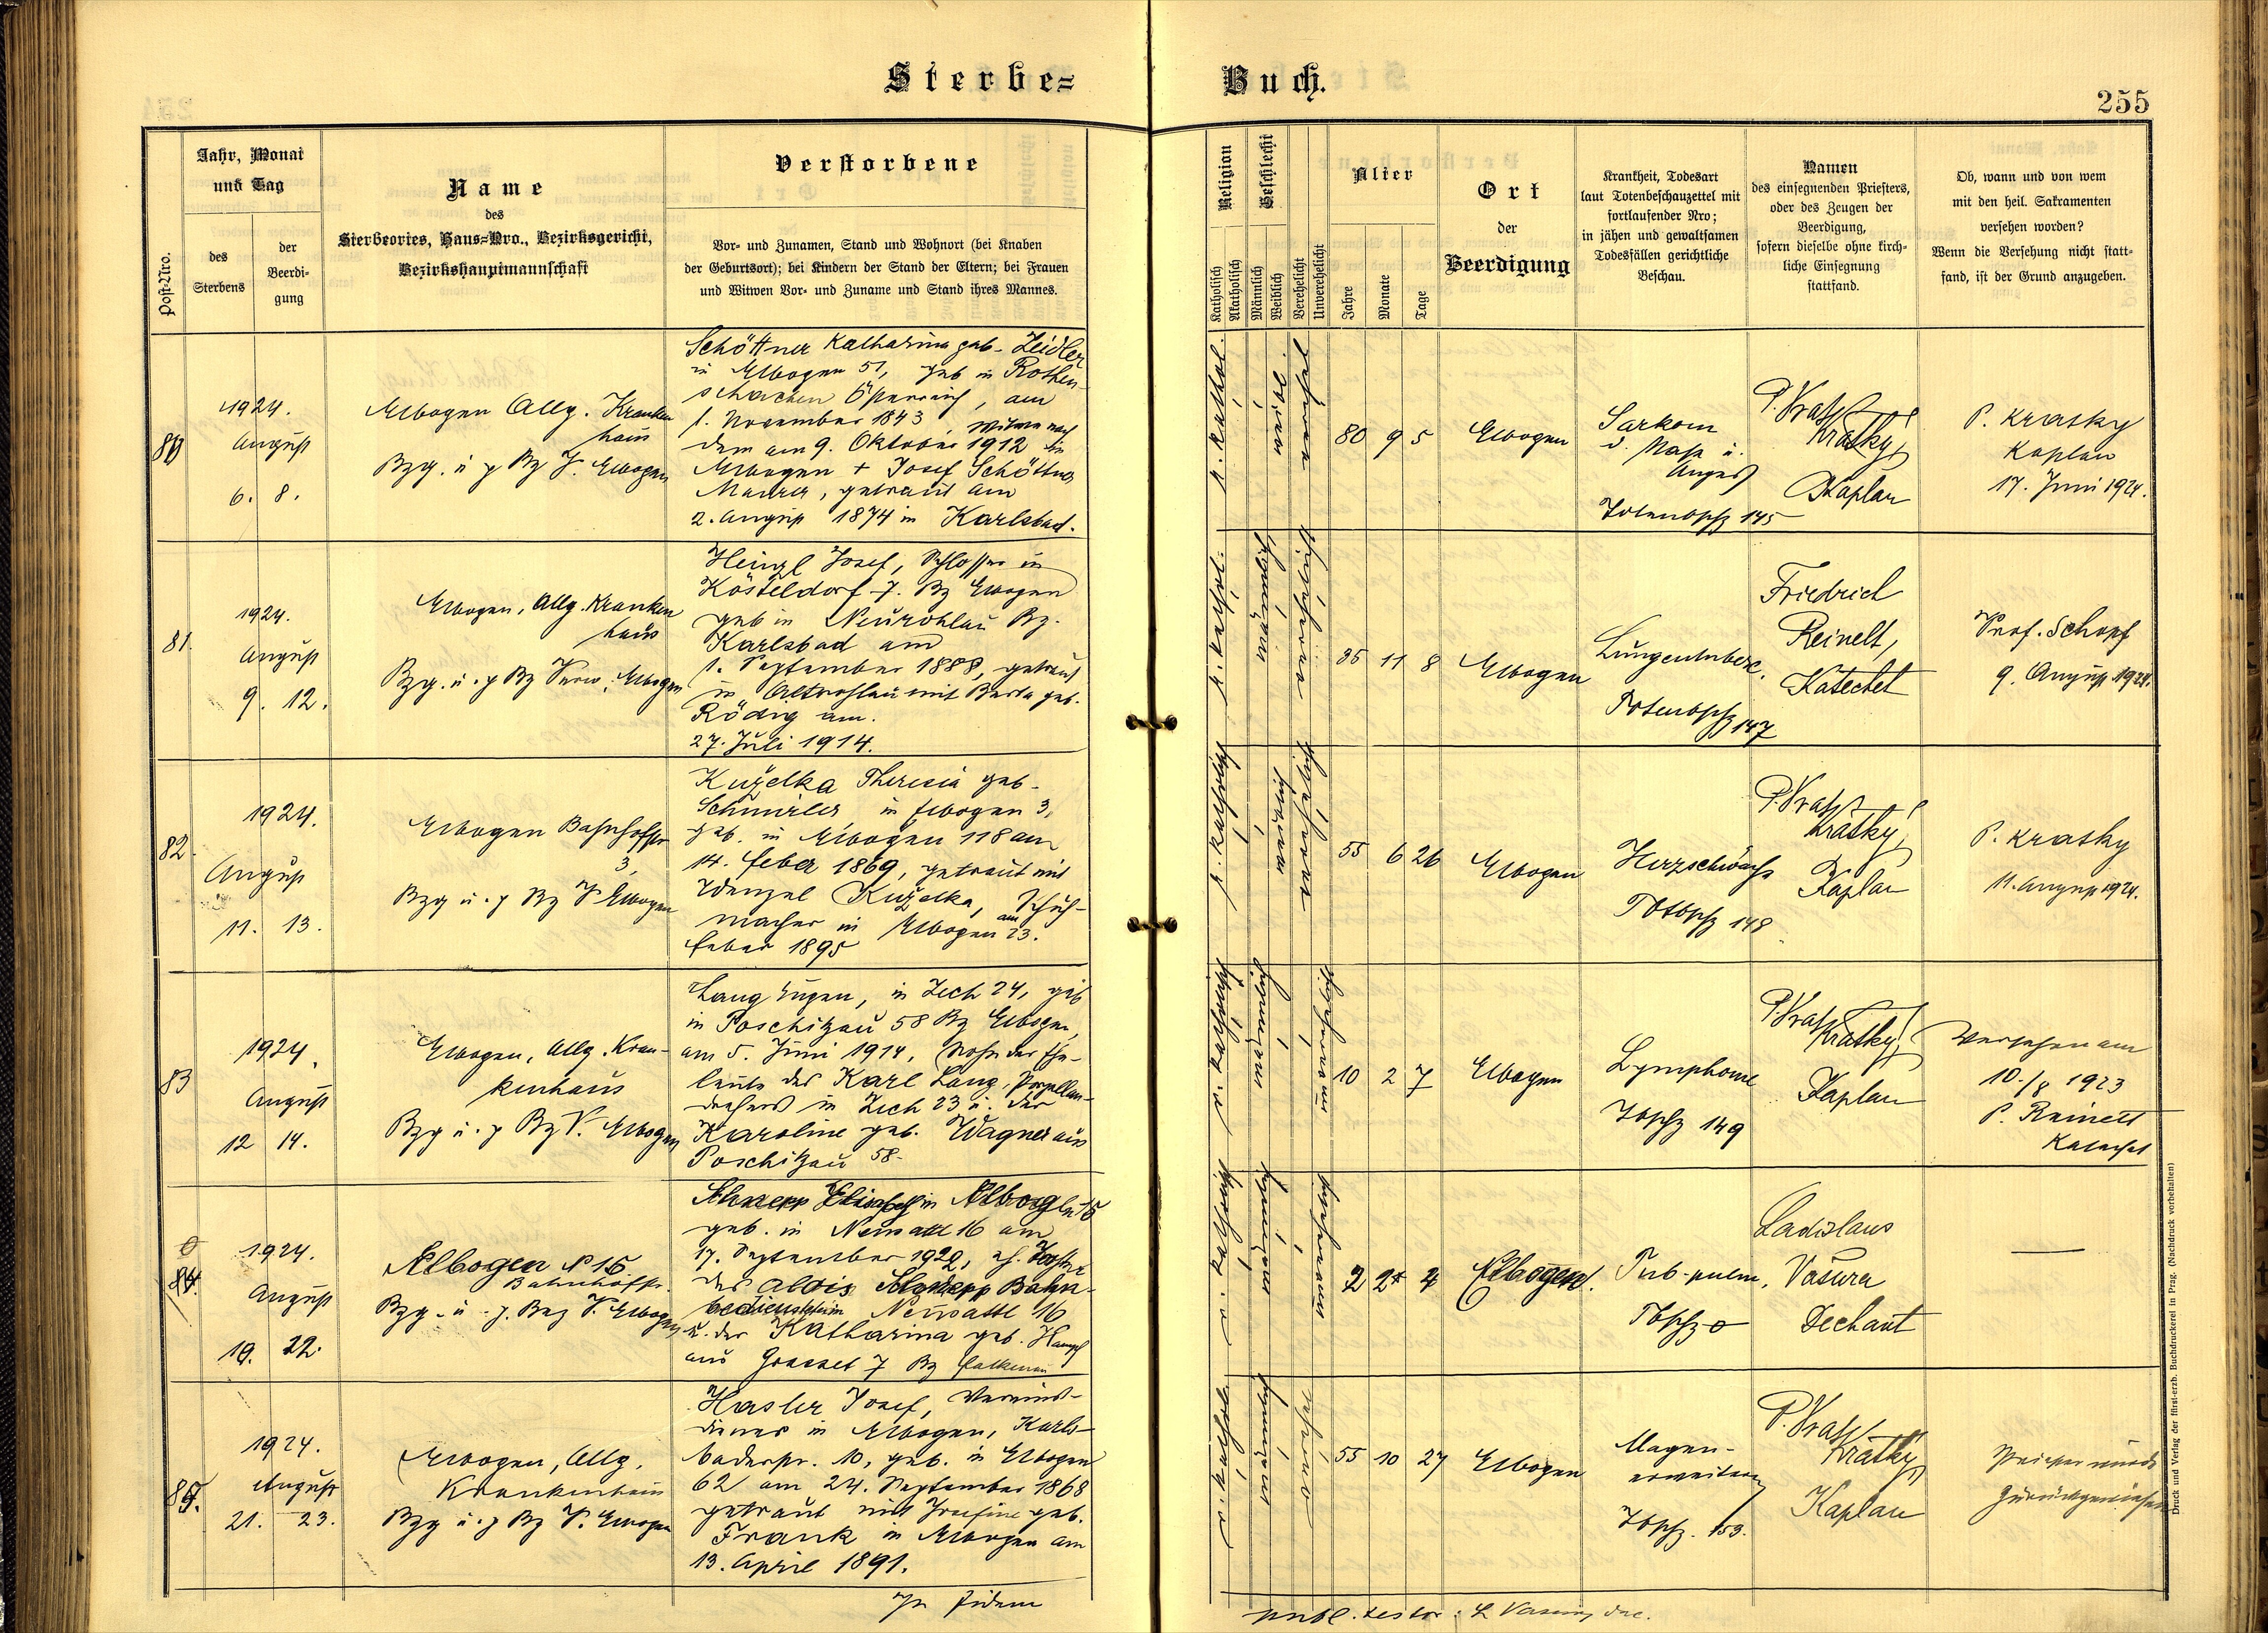 Sterbe=
Buch.
255
Post-Nro.
Jahr, Monat
und Tag
des
Sterbens
der
Beerdi-
gung
Name
des
Sterbeortes, Haus=Nro., Bezirksgericht,
Bezirkshauptmannschaft
Verstorbene
Vor- und Zunamen, Stand und Wohnort (bei Knaben
der Geburtsort); bei Kindern der Stand der Eltern; bei Frauen
und Witwen Vor- und Zuname und Stand ihres Mannes.
Religion
Katholisch
Akatholisch
Geschlecht
Männlich
Weiblich
Verehelicht
Unverehelicht
Alter
Jahre
Monate
Tage
Ort
der
Beerdigung
Krankheit, Todesart
laut Totenbeschauzettel mit
fortlaufender Nro;
in jähen und gewaltsamen
Todesfällen gerichtliche
Beschau.
Namen
des einsegnenden Priesters,
oder des Zeugen der
Beerdigung,
sofern dieselbe ohne kirch-
liche Einsegnung
stattfand.
Ob, wann und von wem
mit den heil. Sakramenten
versehen worden?
Wenn die Versehung nicht statt-
fand, ist der Grund anzugeben.
80
1924.
August
6. 8.
Elbogen Allg. Kranken
haus
Bzg. u. p Bz V. Elbogen
Schöttner Katharina geb. Zeidler
in Elbogen 51, geb in Rothen-
schachen Österreich, am
1. November 1843 Witwe nach
dem am 9. Oktober 1912 in
Elbogen + Josef Schöttner
Maurer, getraut am
2. August 1874 in Karlsbad.
r. kathol.
80 9 5
Elbogen
Sarkom
d. Nase u.
Auges
Totenbschz 145
P.
Krátký,
Kaplan
P. Kratky
Kaplan
17. Juni 1924.
81.
1924.
August
9. 12.
Elbogen, Allg. Kranken
haus
Bzg. u. p Bz Verw. Elbogen
Heinzl Josef, Schlosser in
Kösteldorf 7. Bz Elbogen
geb in Neurohlau Bz.
Karlsbad am
1. September 1888, getraut
in Altrohlau mit Berta geb.
Rödig am.
27. Juli 1914.
r. kathol.
35 11 8
Elbogen
Lungentuberc.
Totenbschz 147
Friedrich
Reinelt,
Katechet
Prof. Schopf
9. August 1924.
82.
1924.
August
11. 13.
Elbogen Bahnhofstr
3,
Bzg u. p Bz V Elbogen
Kuželka Theresia geb.
in Elbogen 3,
geb. in Elbogen 118 am
14. Feber 1869, getraut mit
Wenzel Kuželka, Schuh-
macher in Elbogen am 23.
Feber 1895
r. katholisch
55 6 26
Elbogen
Herzschwäche
Totbschz 148
P.
Krátký,
Kaplan
P. Kratky
11. August 1924.
83
1924.
August
12 14.
Elbogen, Allg. Kran-
kenhaus
Bzg u. p Bz V. Elbogen
Lang Eugen, in Zech 24, geb
in Poschitzau 58 Bz Elbogen,
am 5. Juni 1914, Sohn der Ehe-
leute des Karl Lang, Porzellan-
drehers in Zech 23 u. der
Karoline geb. Wagner aus
Poschitzau 58.
r. katholisch
10 2 7
Elbogen
Lymphome
Tbschz 149
P.
Krátký,
Kaplan
Versehen am
10./8 1923
P. Reinelt
Katechet
84.
1924.
August
19. 22.
Elbogen N 15
Bahnhofstr.
Bzg. u. p. Bez V. Elbogen
in Elbogen 15
geb. in Neusattl 16 am
17. September, eh. Tochter
des Alois Bahn-
bediensteter in Neusattl 16
u. der Katharina geb. Hampl
aus Grasset 7 Bz Falkenau
r. katholisch
2 2 4
Elbogen.
Tub. pulm.
Tbschz 0
Ladislaus
Vasura
Dechant
85.
1924.
August
21. 23.
Elbogen, Allg.
Krankenhaus
Bzg u. p Bz V. Elbogen
Hasler Josef, Vereins-
diener in Elbogen, Karls-
baderstr. 10, geb. in Elbogen
62 am 24. September 1868
getraut mit Josefine geb.
Frank in Elbogen am
13. April 1891.
r. kathol.
55 10 27
Elbogen
Magen-
erweiterung
Tbschz. 153.
P.
Krátký,
Kaplan
Priester wurde
zurückgewiesen
In fidem
L Vasura, Dec.
Druck und Verlag der fürst-erzb. Buchdruckerei in Prag. (Nachdruck vorbehalten)